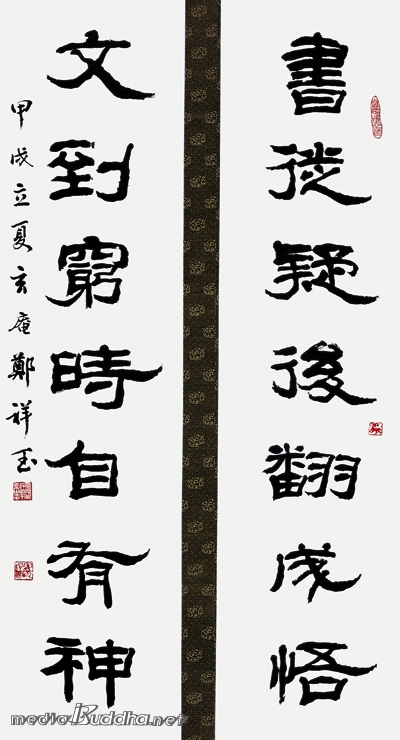 書從疑後翻成悟
文到窮時自有神
甲戌立夏玄庵鄭祥玉
mediaBuddha.net